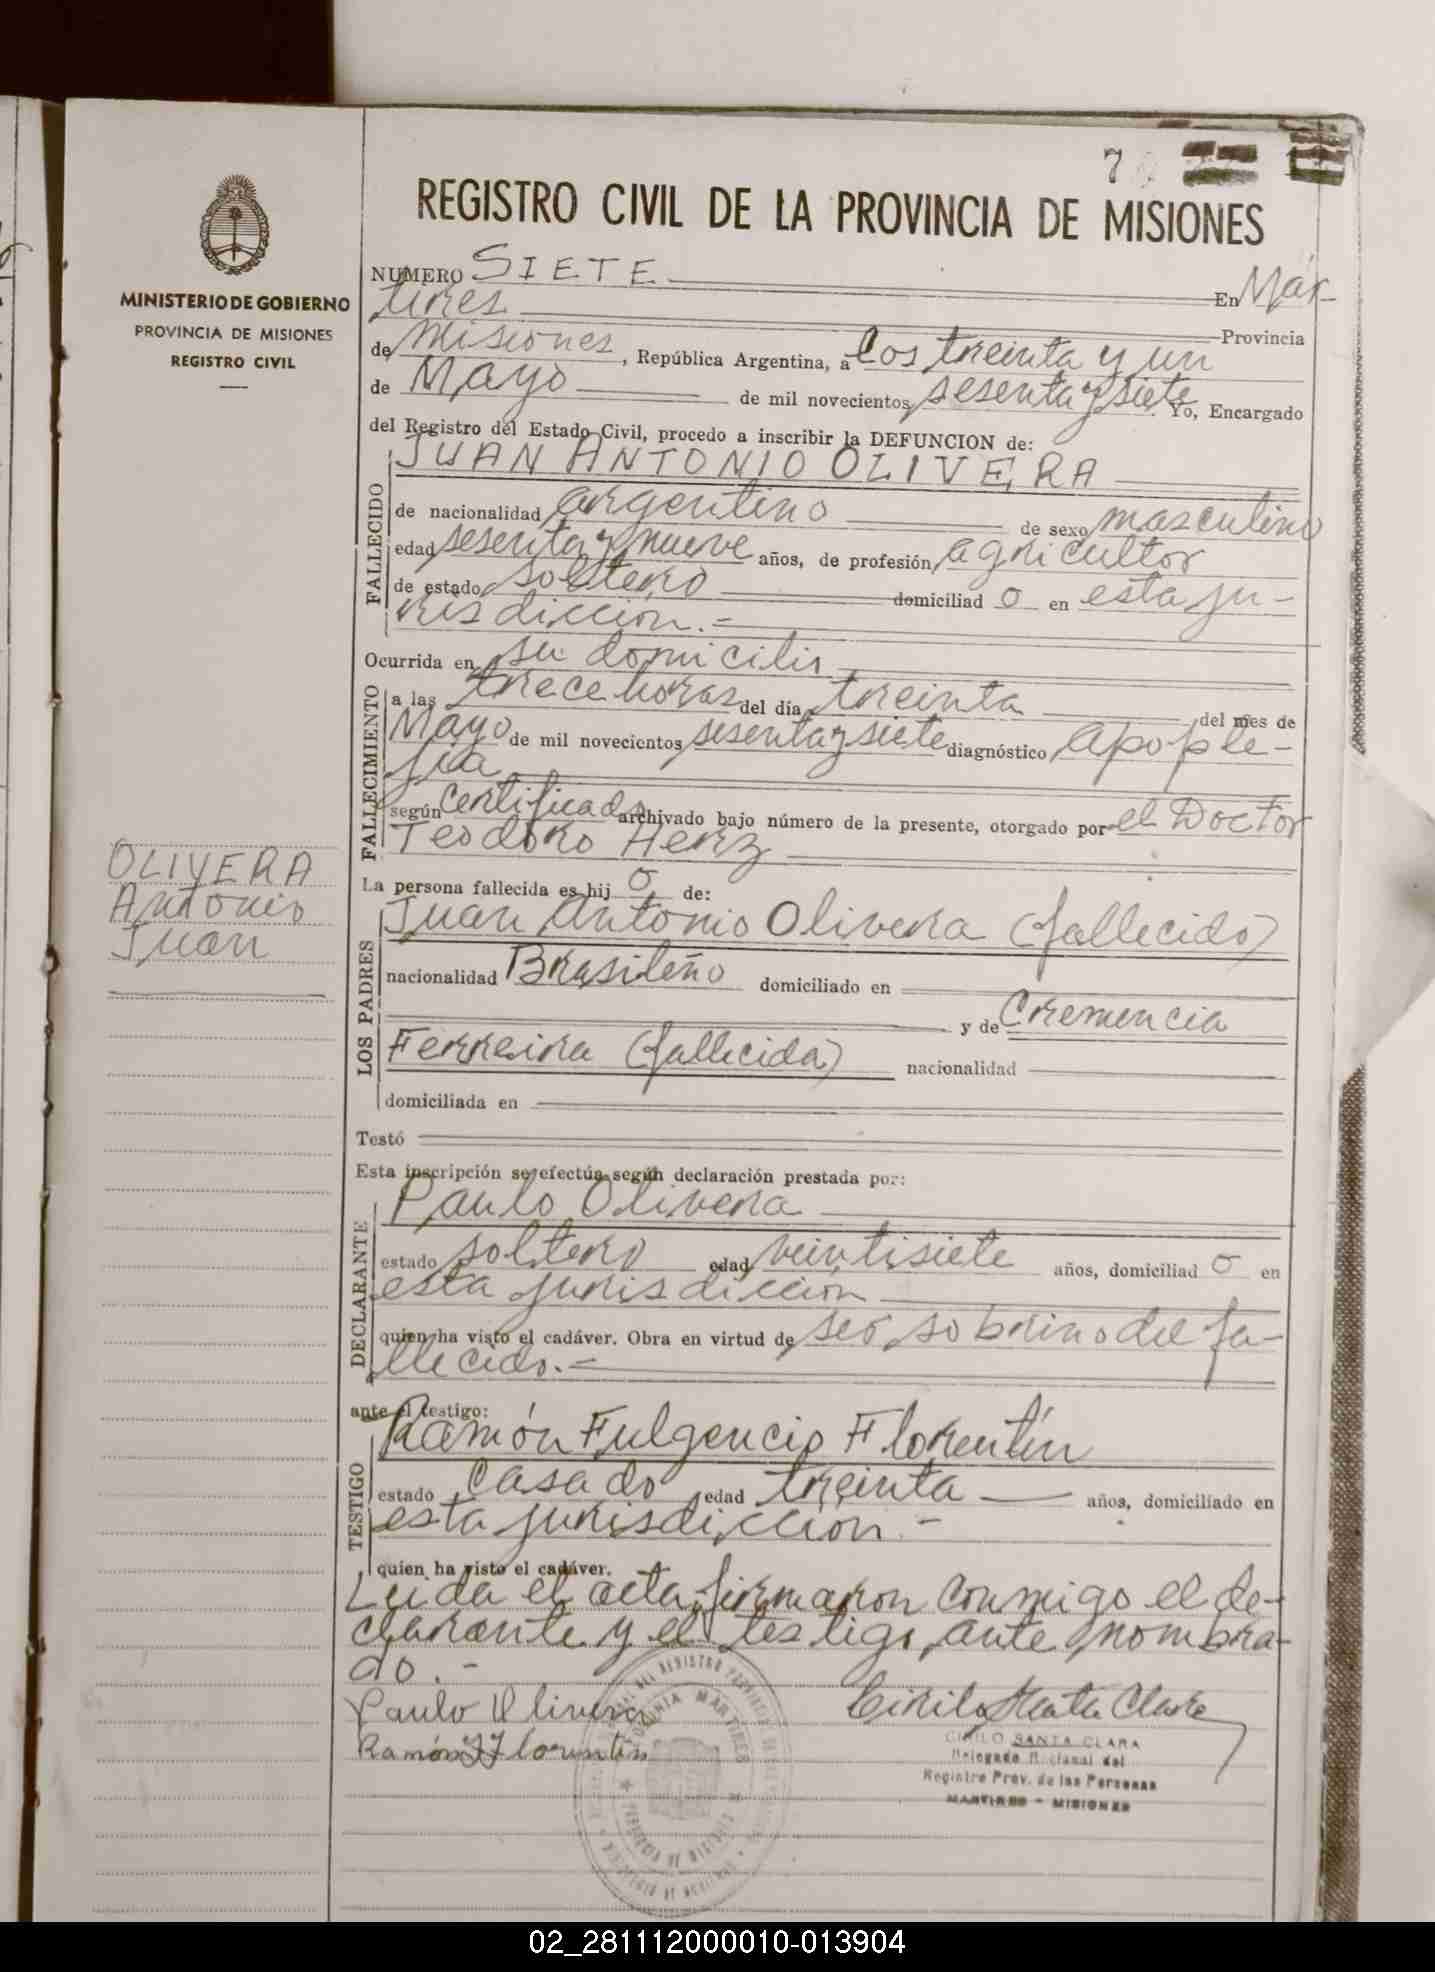 7
REGISTRO CIVIL DE LA PROVINCIA DE MISIONES
MINISTERIO DE GOBIERNO
PROVINCIA DE MISIONES
REGISTRO CIVIL
NUMERO SIETE En Már-
tires Provincia
de Misiones, República Argentina, a los treinta y un
de Mayo de mil novecientos sesenta y siete. Yo, Encargado
del Registro del Estado Civil, procedo a inscribir la DEFUNCION de:
FALLECIDO
JUAN ANTONIO OLIVERA
de nacionalidad argentino de sexo masculino
edad sesenta y nueve años, de profesión agricultor
de estado soltero domiciliad o en esta ju-
risdiccion.-
FALLECIMIENTO
Ocurrida en su domicilio
a las trece horas del día treinta del mes de
Mayo de mil novecientos sesenta y siete diagnóstico apople-
jia
según certificado archivado bajo número de la presente, otorgado por el Doctor
Teodoro Herz
OLIVERA
Antonio
Juan
La persona fallecida es hij o de:
LOS PADRES
Juan Antonio Olivera (fallecido)
nacionalidad Brasileño domiciliado en
y de Cremencia
Ferreira (fallecida) nacionalidad
domiciliada en
Testó
Esta inscripción se efectúa según declaración prestada por:
DECLARANTE
Paulo Olivera
estado soltero edad veintisiete años, domiciliad o en
esta jurisdiccion
quien ha visto el cadáver. Obra en virtud de ser sobrino del fa-
llecido.-
ante el testigo:
TESTIGO
Ramón Fulgencio Florentín
estado casado edad treinta años, domiciliado en
esta jurisdiccion.-
quien ha visto el cadáver.
Leida el acta, firmaron conmigo el de-
clarante y el testigo ante nombra-
do.-
Paulo Olivera
Ramón F Florentín
Cirilo Santa Clara
CIRILO SANTA CLARA
Delegado Seccional del
Registro Prov. de las Personas
MARTIRES - MISIONES
COLONIA MARTIRES
PROVINCIA DE MISIONES
02_281112000010-013904